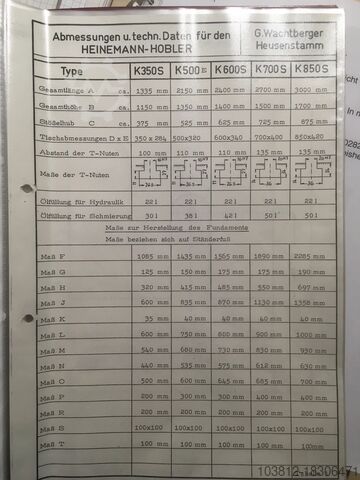 Abmessungen u. techn. Daten für den
HEINEMANN-HOBLER
G. Wachtberger
Heusenstamm
Type K350S K500E K600S K700S K850S
Gesamtlänge A ca. 1335 mm 2150 mm 2400 mm 2700 mm 3000 mm
Gesamthöhe B ca. 1150 mm 1350 mm 1400 mm 1500 mm 1700 mm
Stößelhub C ca. 375 mm 525 mm 625 mm 725 mm 875 mm
Tischabmessungen D x E 350 x 284 500x320 600x340 700x400 850x420
Abstand der T-Nuten 100 mm 110 mm 110 mm 135 mm 135 mm
Maße der T-Nuten
Ölfüllung für Hydraulik 22 l 22 l 22 l 22 l 22 l
Ölfüllung für Schmierung 30 l 38 l 42 l 50 l 50 l
Maße zur Herstellung des Fundamente
Maße beziehen sich auf Ständerfuß
Maß F 1085 mm 1435 mm 1565 mm 1890 mm 2285 mm
Maß G 125 mm 150 mm 175 mm 175 mm 190 mm
Maß H 320 mm 415 mm 485 mm 550 mm 697 mm
Maß J 600 mm 835 mm 870 mm 1130 mm 1358 mm
Maß K 35 mm 40 mm 40 mm 40 mm 40 mm
Maß L 600 mm 750 mm 800 mm 900 mm 1000 mm
Maß M 540 mm 680 mm 730 mm 830 mm 930 mm
Maß N 440 mm 535 mm 575 mm 612 mm 630 mm
Maß O 500 mm 600 mm 645 mm 685 mm 700 mm
Maß P 200 mm 300 mm 300 mm 400 mm 400 mm
Maß R 200 mm 200 mm 200 mm 200 mm 200 mm
Maß S 100x100 100x100 100x100 100x100 100x100
Maß T 100 mm 100 mm 100 mm 100 mm 100mm
103812-18306471